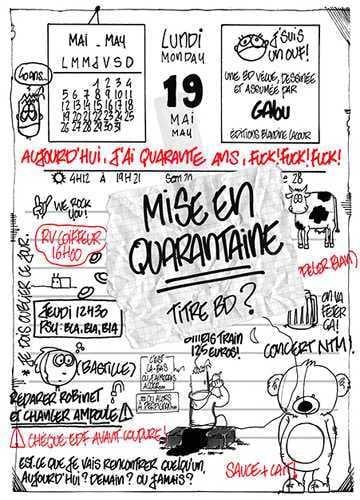 MAI - MAY
L M M J V S D
1 2 3 4
5 6 7 8 9 10 11
12 13 14 15 16 17 18
19 20 21 22 23 24 25
26 27 28 29 30 31
LUNDI
MONDAY
19
MAI
MAY
J'SUIS
UN OUF!
UNE BD VÉCUE, DESSINÉE
ET ASSUMÉE PAR
GALOU
ÉDITIONS BLANDINE LACOUR
40 ANS...
AUJOURD'HUI, J'AI QUARANTE ANS, FUCK! FUCK! FUCK!
4H12 À 19H21
28
WE ROCK
YOU!
MISE EN
QUARANTAINE
TITRE BD?
RV COIFFEUR
16H00
* JE DOIS OUBLIER CE JOUR.
JEUDI 12H30
PSY: BLA, BLA, BLA
PELER BLANC)
ON VA
FÊTER
ÇA!
BILLETS TRAIN
125 EUROS!
CONCERT NTM).
(BASTILLE)
C'EST
LÀ-BAS
OU ALORS
À PERPÈTE...
RÉPARER ROBINET
ET CHANGER AMPOULE
CHÈQUE EDF AVANT COUPURE!
EST-CE QUE JE VAIS RENCONTRER QUELQU'UN,
AUJOURD'HUI? DEMAIN? OU JAMAIS?
SAUCE + LAIT!